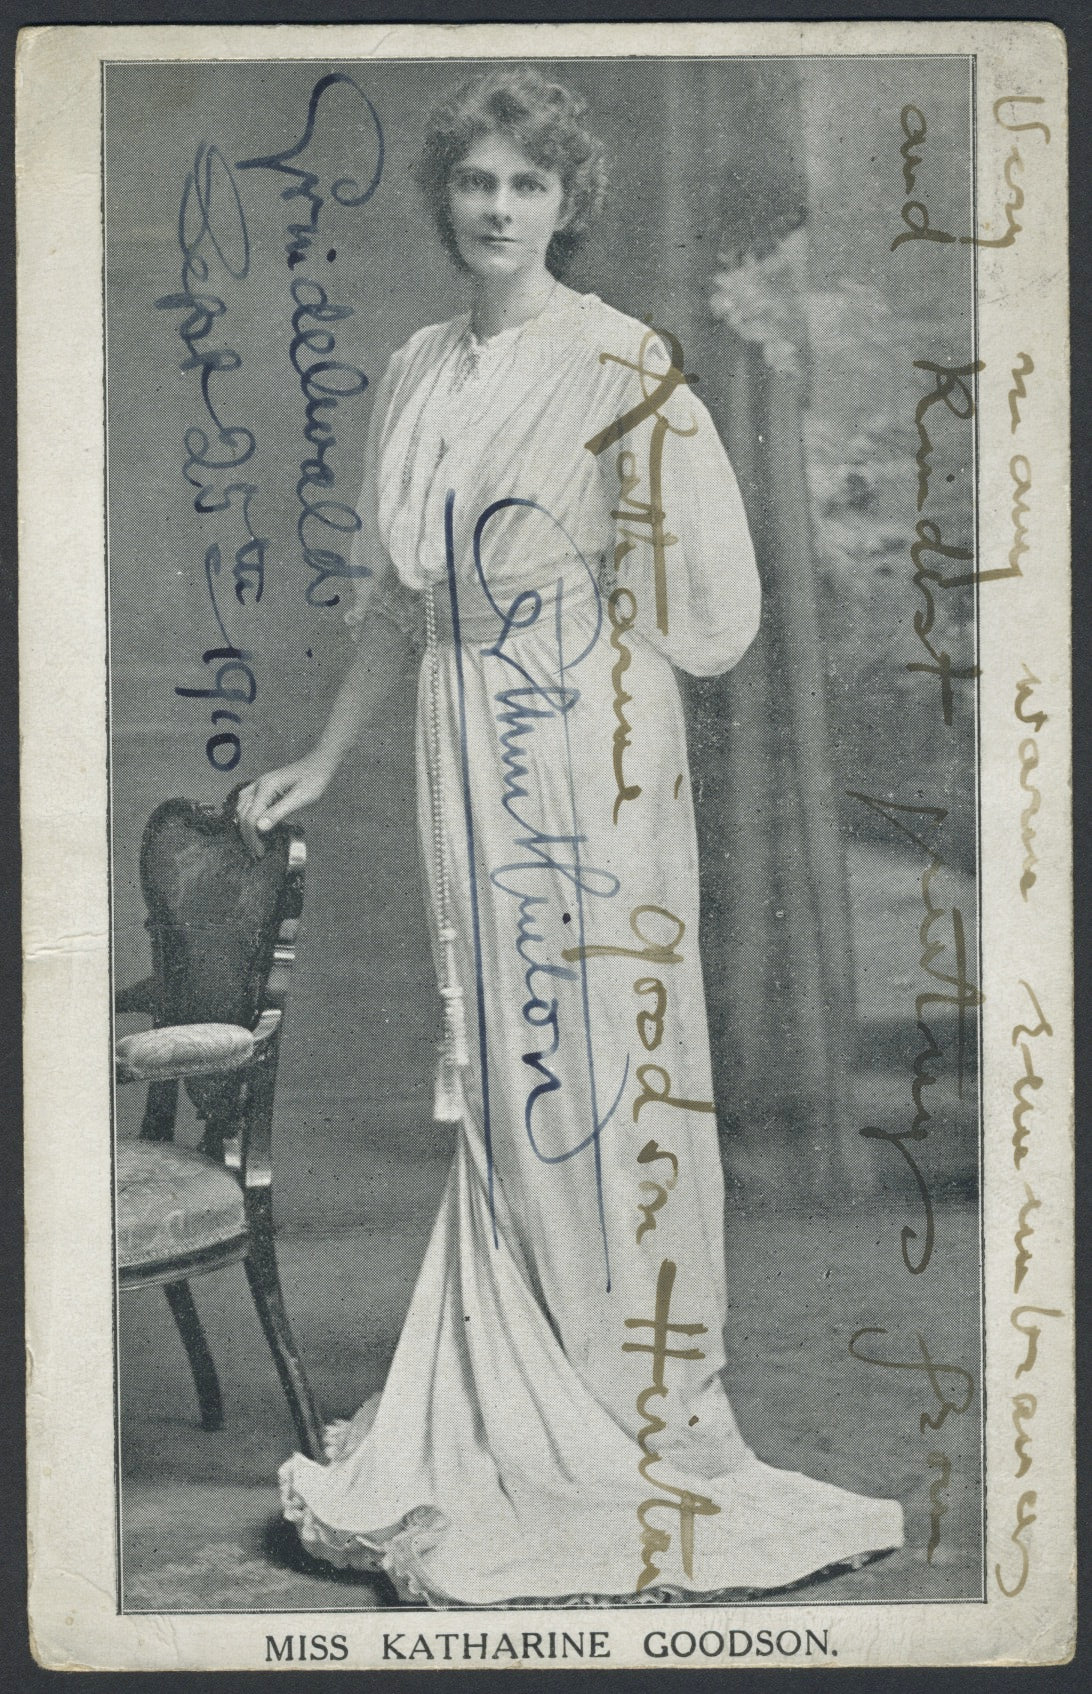 Very many warm remembrances
and kindest greetings from
Katharine Goodson Hinton
Arthur Hinton
Grindelwald
Sept 25th 1910
MISS KATHARINE GOODSON.